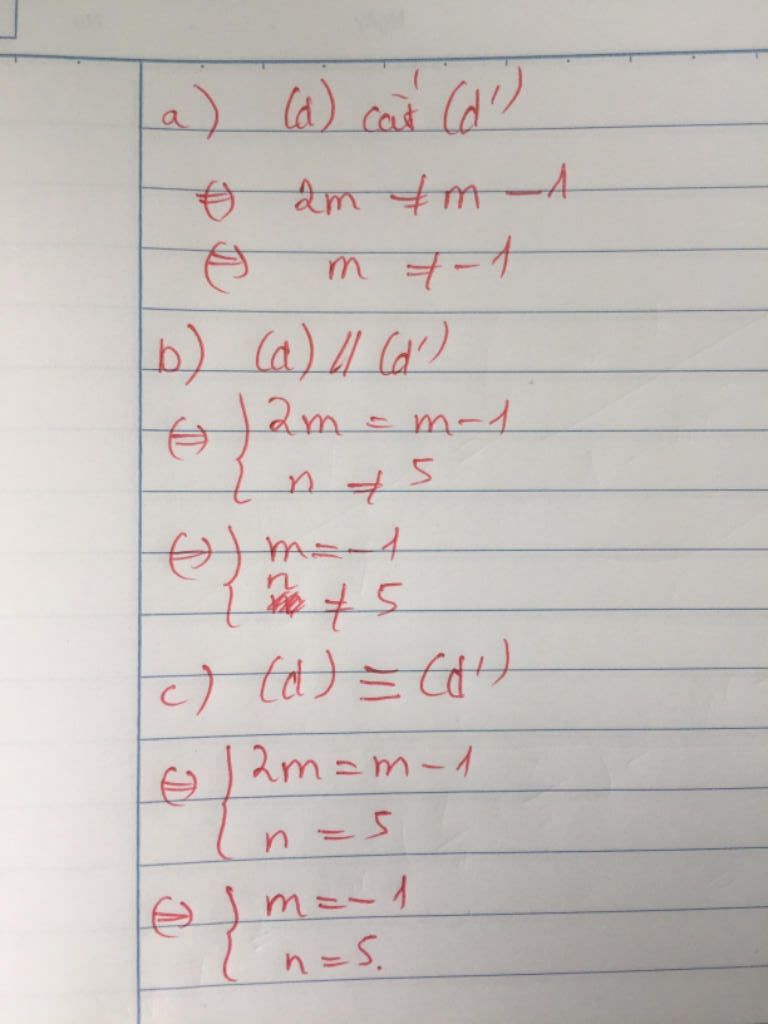 a) (d) cắt (d')
⇔ 2m ≠ m - 1
⇔ m ≠ -1
b) (d) // (d')
⇔ { 2m = m - 1
n ≠ 5
⇔ { m = -1
n ≠ 5
c) (d) ≡ (d')
⇔ { 2m = m - 1
n = 5
⇔ { m = -1
n = 5.